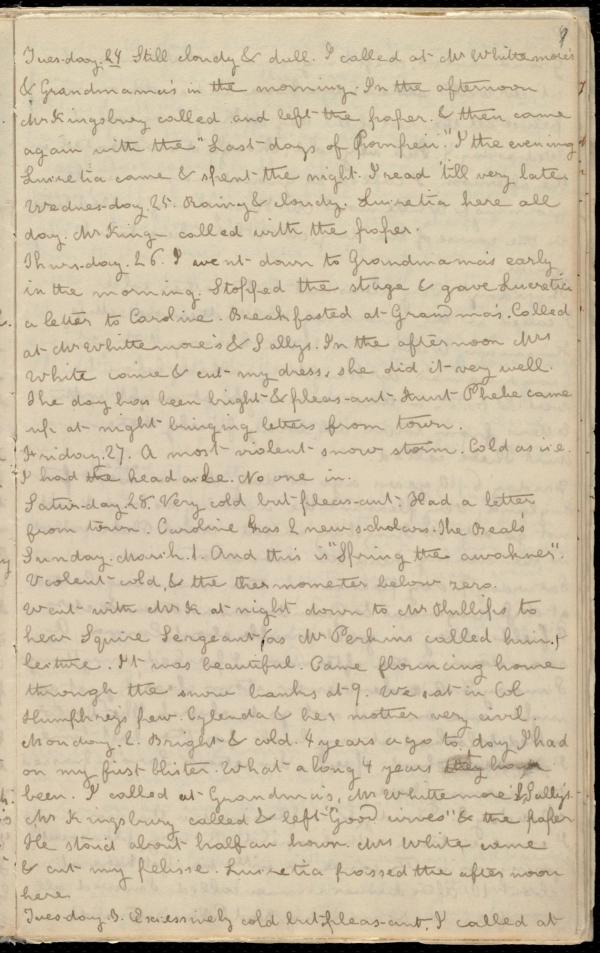 9
Tues-day. 24 Still cloudy & dull. I called at Mr Whittemore's
& Grandmama's in the morning. In the afternoon
Mr Kingsbury called and left the paper. & then came
again with the "Last days of Pompeii." I the evening
Lucretia came & spent the night. I read 'till very late.
Wednes-day. 25. Rainy & cloudy. Lucretia here all
day. Mr King- called with the paper.
Thurs-day. 26. I went down to Grandmama's early
in the morning. Stopped the stage & gave Lucretia
a letter to Caroline. Breakfasted at Grandma's. Called
at Mr Whittemore's & Sallys. In the afternoon Mrs
White came & cut my dress, she did it very well.
The day has been bright & pleas-ant. Aunt Phebe came
up at night bringing letters from town.
Friday. 27. A most violent snow storm. Cold as ice.
I had the head ache. No one in.
Satur-day. 28. Very cold but pleas-ant. Had a letter
from town. Caroline has 2 new scholars. The Beals
Sunday. March. 1. And this is "Spring the awakner".
Violent cold, & the thermometer below zero.
Went with Mr K at night down to Mr Phillips to
hear Squire Sergeant (as Mr Perkins called him)
lecture. It was beautiful. Came flouncing home
through the snow banks at 9. We sat in Col
Humphreys pew. Cylenda & her mother very civil.
Monday. 2. Bright & cold. 4 years ago to day I had
on my first blister. What a long 4 years they have
been. I called at Grandma's, Mr Whittemore's & Sally's
Mr Kingsbury called & left "Good wives" & the paper
He staid about half an hour. Mrs White came
& cut my pelisse. Lucretia passed the after noon
here.
Tues-day 3. Excessively cold but pleas-ant. I called at